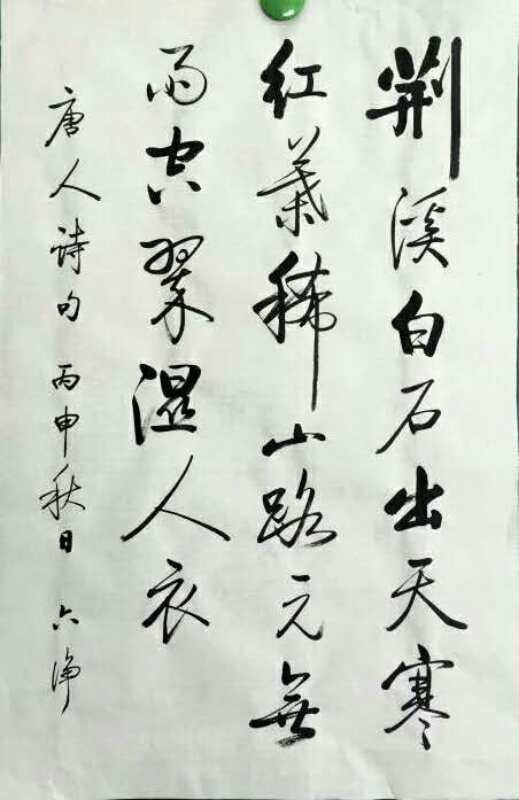 荆溪白石出天寒
红葉稀山路元無
雨空翠濕人衣
唐人詩句 丙申秋日 六净